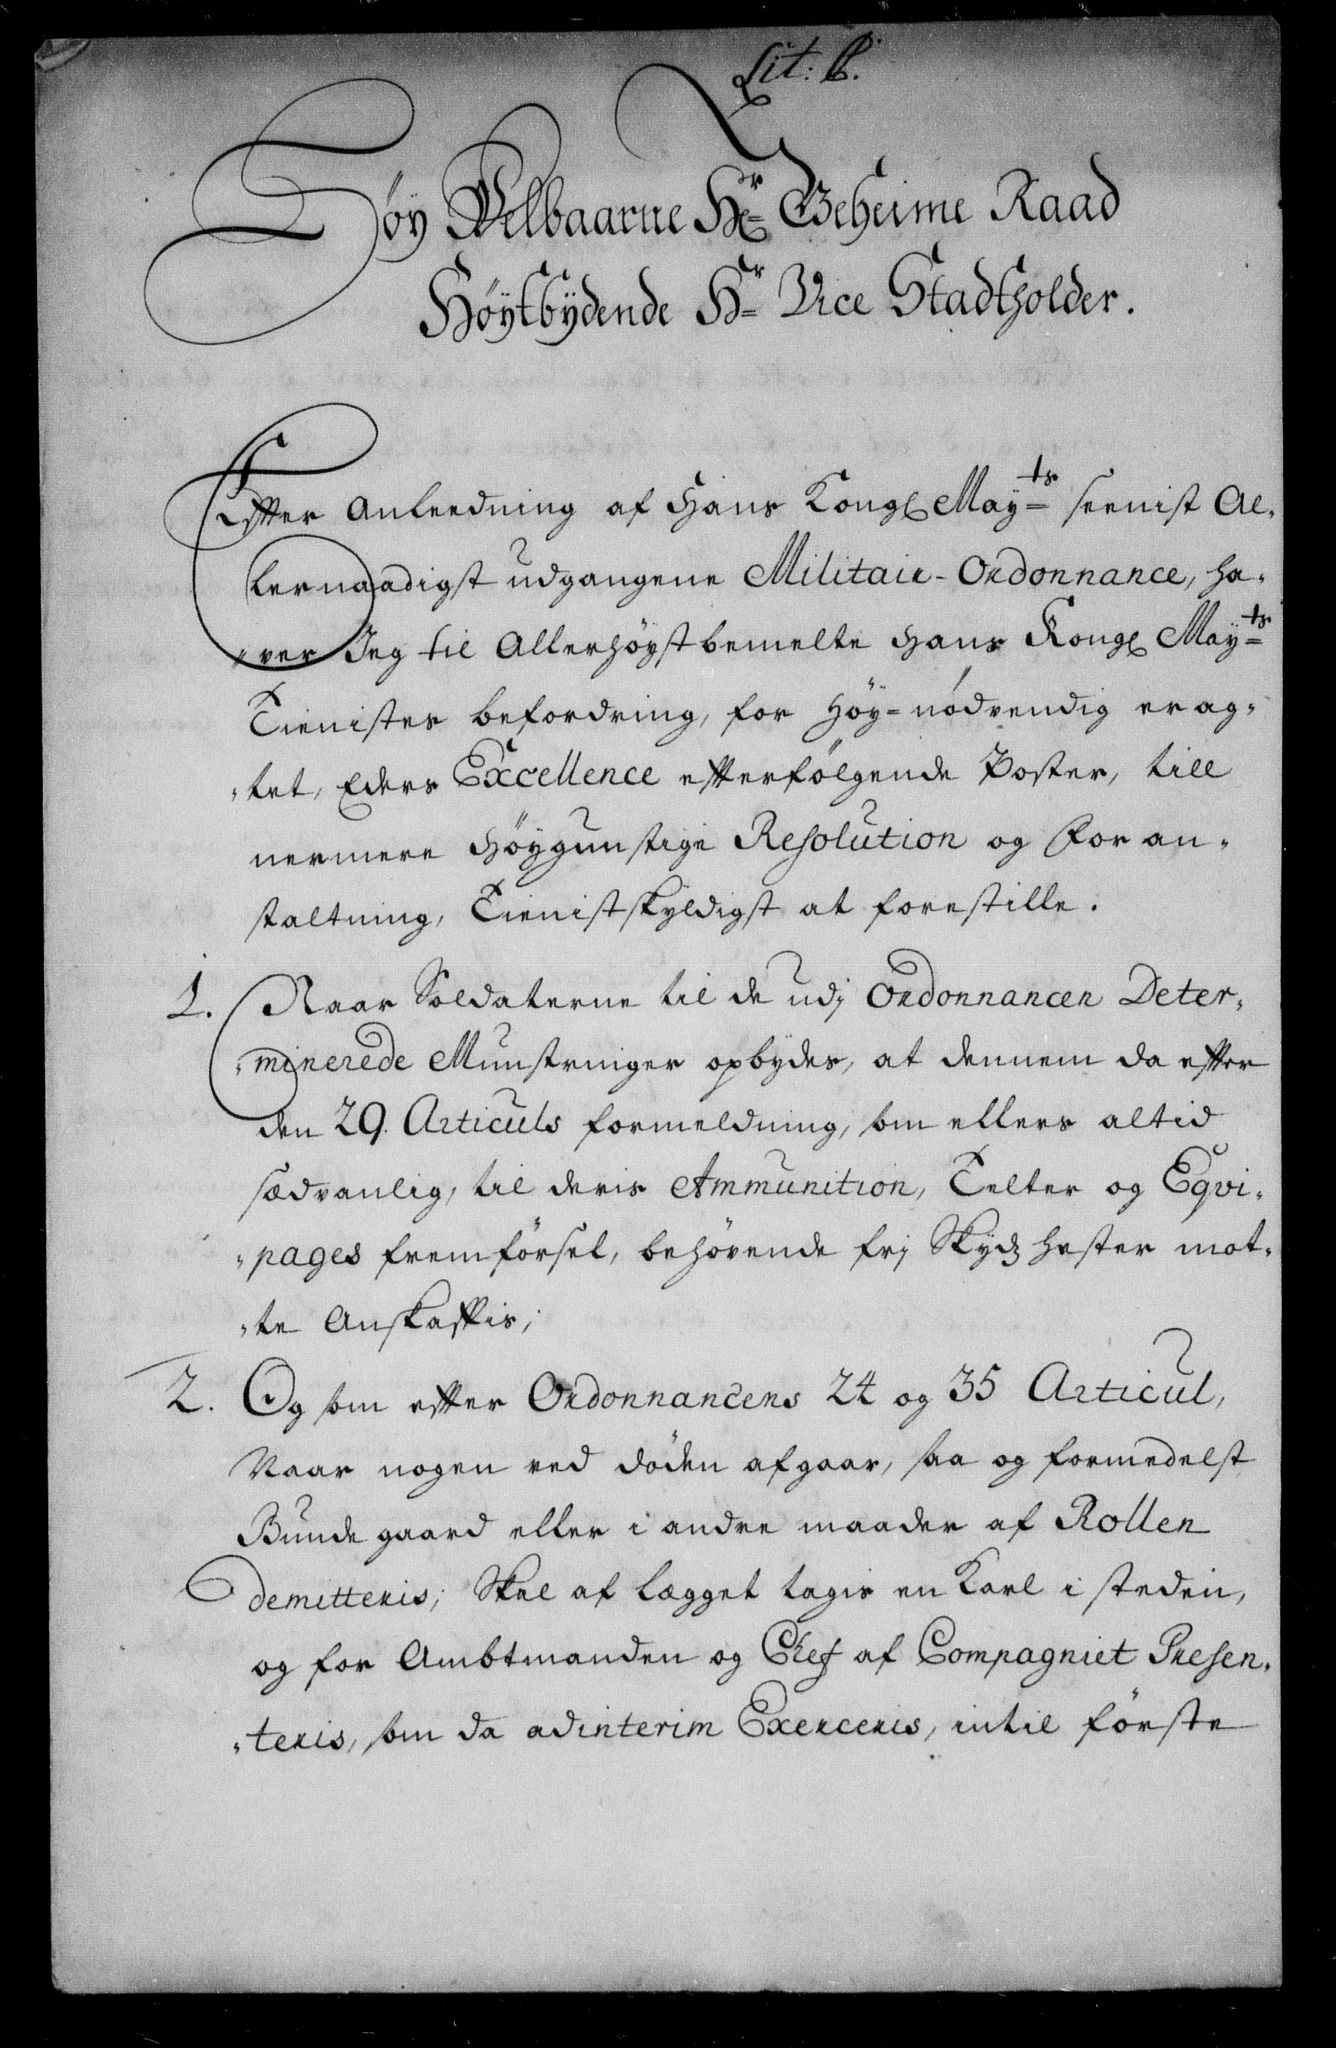 Lit: C.
Høy Velbaarne Hr Geheime Raad
Høytbydende Hr Vice Stadtholder.
Effter Anleedning af Hans Kongl Mayts seenist Al,
lernaadigst udgangene Militair-Ordonnance, ha,
"ver Jeg til Allerhöystbemelte Hans Kongl Mayts
Tienistes befordring, for Höy=nödvendig erag,
"tet, Eders Excellence effterfölgende Poster, till
nermere höygunstige Resolution og For an,
staltning, Tienistskyldigst at forestille.
1. Naar Soldaterne til de udj Ordonnancen Deter,
"minerede Munstringer opbydes, at dennem da effter
den 29. Articuls formeldning, som ellers altid
sædvanlig, til deris Ammunition, Telter og Eqvi,
"pages fremförsel, behövende frj Skydz hester mot,
"te Anskaffis;
2. Og som effter Ordonnancens 24 og 35 Articul,
Naar nogen ved döden afgaar, saa og formedelst
Bunde gaard eller i andre maader af Rollen
demitteris; Skal af Lægget tagis en Karl i steden,
og for Ambtmanden og Chef af Compagniet Presen,
"teris, som da adinterim Exerceris, intil förste